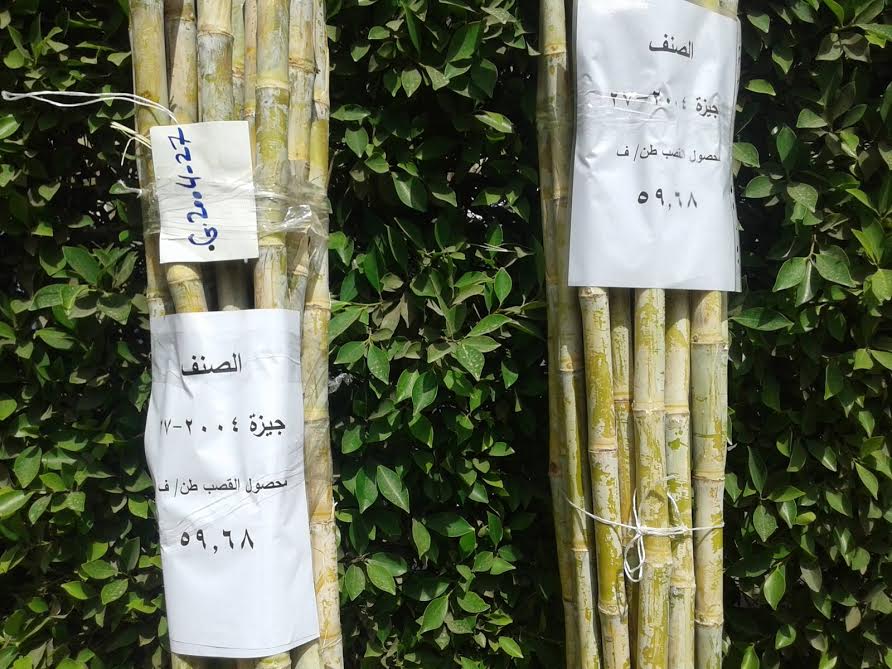 G.2004-27
الصنف
جيزة ٢٠٠٤-٢٧
محصول القصب طن/ ف
٥٩,٦٨
الصنف
جيزة ٢٠٠٤-٢٧
محصول القصب طن/ ف
٥٩,٦٨